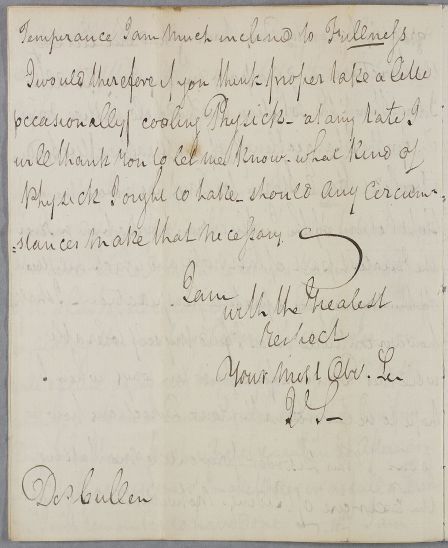 Temperance I am much inclind to Fullness
I would therefore if you think proper take a little
occasionally cooling Physick - at any rate I
will thank you to let me know - what kind of
Physick I ought to take - should any Circum-
-stances make that necessary.
I am
with the Greatest
Respect
Your most Obt. Ser
Dr Cullen